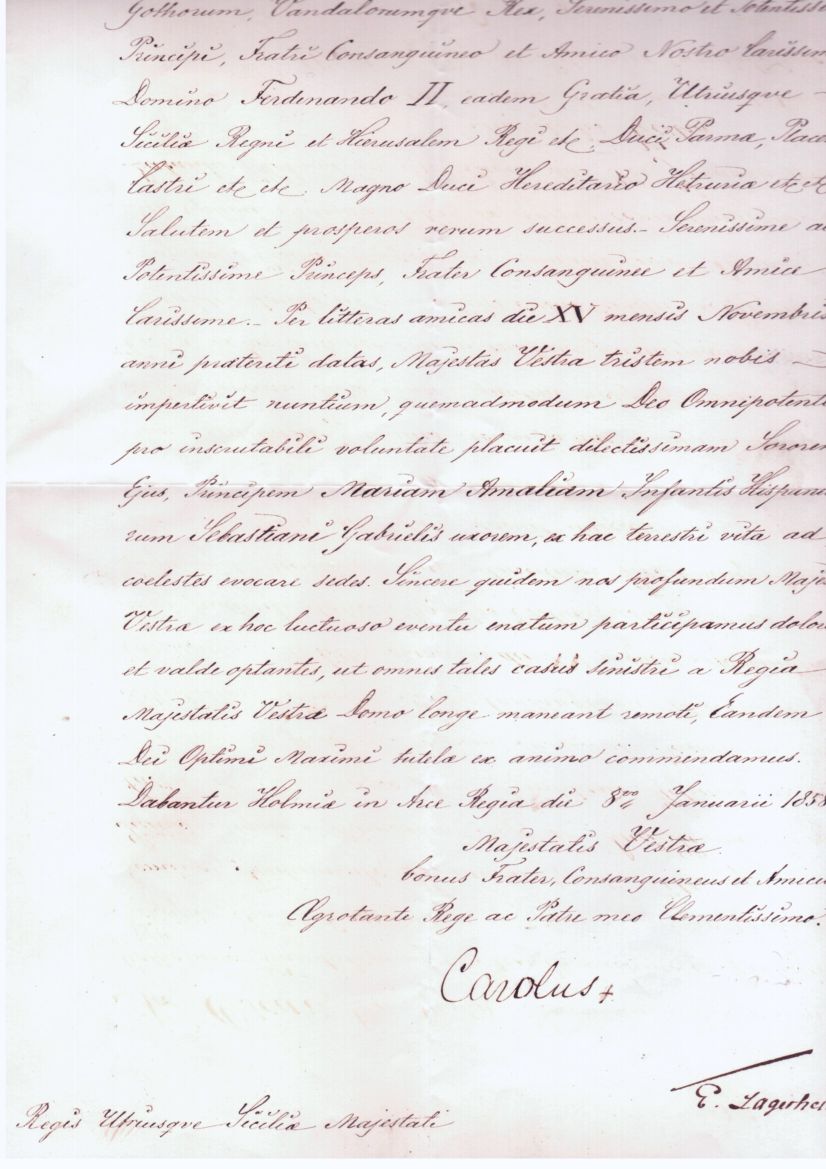 Gothorum, Vandalorumqve Rex, Serenissimo et Potentiss
Principi, Fratri Consanguineo et Amico Nostro Carissim
Domino Ferdinando II, eadem Gratia, Utriusqve –
Siciliæ Regni et Hierusalem Regi etc, Duci Parmæ, Place
Castri etc etc. Magno Duci Hereditario Hetruriæ etc etc
Salutem et prosperos rerum successus. – Serenissime a
Potentissime Princeps, Frater Consanguinee et Amice
Carissime. – Per litteras amicas die XV mensis Novembris
anni præteriti datas, Majestas Vestra tristem nobis –
impertivit nuntium, quemadmodum Deo Omnipotenti
pro inscrutabili voluntate placuit dilectissimam Sororem
Ejus, Principem Mariam Amaliam Infantis Hispano
rum Sebastiani Gabrielis uxorem, ex hac terrestri vita ad
coelestes evocare sedes. Sincere quidem nos profundum Maje
Vestræ ex hoc luctuoso eventu enatum participamus dolor
et valde optantes, ut omnes tales casus sinistri a Regia
Majestatis Vestræ Domo longe maneant remoti, Eandem
Dei Optimi Maximi tutelæ ex animo commendamus.
Dabantur Holmiæ in Arce Regia die 8vo Januarii 1858
Majestatis Vestræ
bonus Frater, Consanguineus et Amicus
Ægrotante Rege ac Patre meo Clementissimo.
Carolus
E. Lagerhei
Regis Utriusqve Siciliæ Majestati